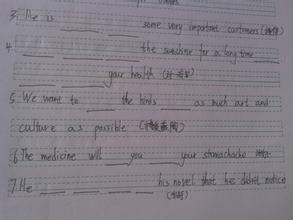 3. He is ___ ___ ___ some very important customers (接待)
4. ___ ___ ___ ___ the sunshine for a long time ___
___ ___ your health (对…有害)
5. We want to ___ the kinds ___ as much art and
culture as possible
6. The medicine will ___ you ___ your stomachache
7. He ___ ___ ___ ___ his novel that he didn't notice